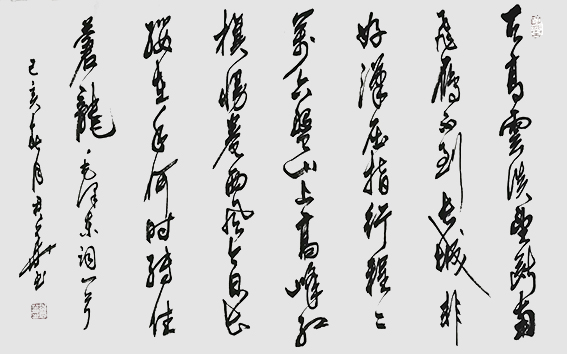 天高雲淡望斷南
飛雁不到長城非
好漢屈指行程二
萬六盤山上高峰紅
旗漫卷西風今日長
纓在手何時縛住
蒼龍 毛澤東詞一首
己亥秋月 書